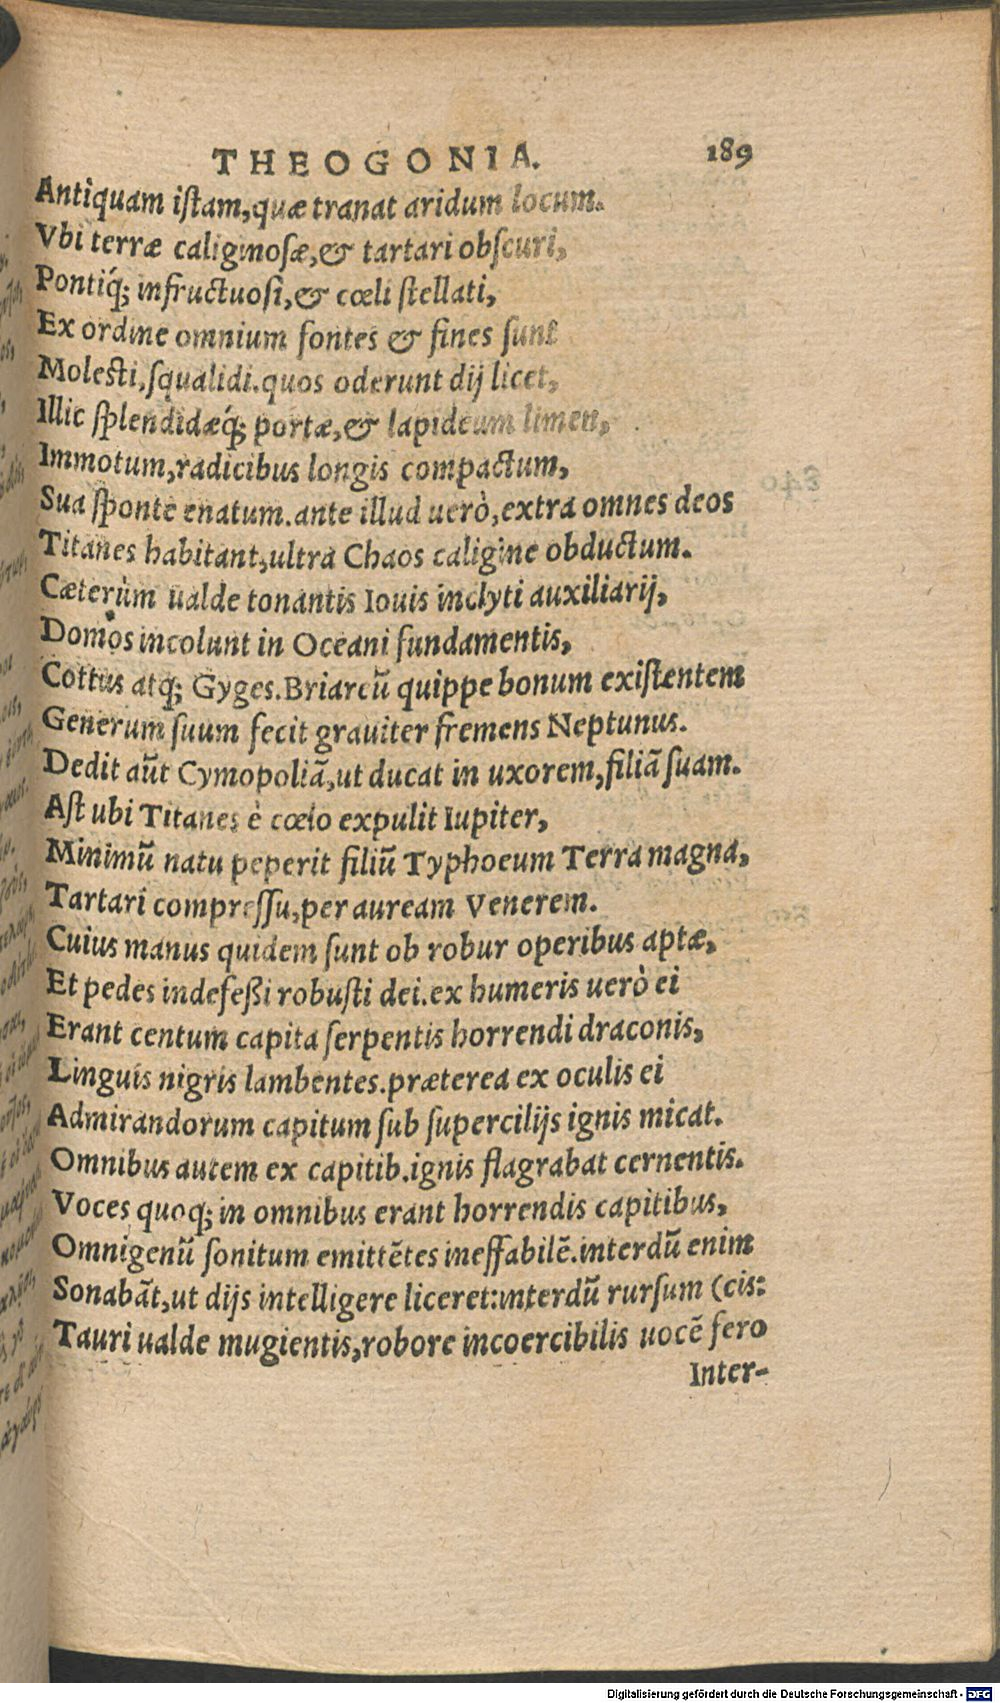 THEOGONIA. 189
Antiquam istam,quæ tranat aridum locum.
Vbi terræ caliginosæ,& tartari obscuri,
Pontiq́; infructuosi,& cœli stellati,
Ex ordine omnium fontes & fines sunt
Molesti,squalidi.quos oderunt dij licet,
Illic splendidæq́; portæ,& lapideum limen,
Immotum,radicibus longis compactum,
Sua sponte enatum.ante illud uerò,extra omnes deos
Titanes habitant,ultra Chaos caligine obductum.
Cæterùm ualde tonantis Iouis inclyti auxiliarij,
Domos incolunt in Oceani fundamentis,
Cottus atq; Gyges.Briareũ quippe bonum existentem
Generum suum fecit grauiter fremens Neptunus.
Dedit aũt Cymopoliã,ut ducat in uxorem,filiã suam.
Ast ubi Titanes è cœlo expulit Iupiter,
Minimũ natu peperit filiũ Typhoeum Terra magna,
Tartari compressu,per auream Venerem.
Cuius manus quidem sunt ob robur operibus aptæ,
Et pedes indefeßi robusti dei.ex humeris uerò ei
Erant centum capita serpentis horrendi draconis,
Linguis nigris lambentes.præterea ex oculis ei
Admirandorum capitum sub supercilijs ignis micat.
Omnibus autem ex capitib.ignis flagrabat cernentis.
Voces quoq; in omnibus erant horrendis capitibus,
Omnigenũ sonitum emittẽtes ineffabilẽ.interdũ enim
Sonabãt,ut dijs intelligere liceret:interdũ rursum (cis:
Tauri ualde mugientis,robore incoercibilis uocẽ fero
Inter-
Digitalisierung gefördert durch die Deutsche Forschungsgemeinschaft - DFG